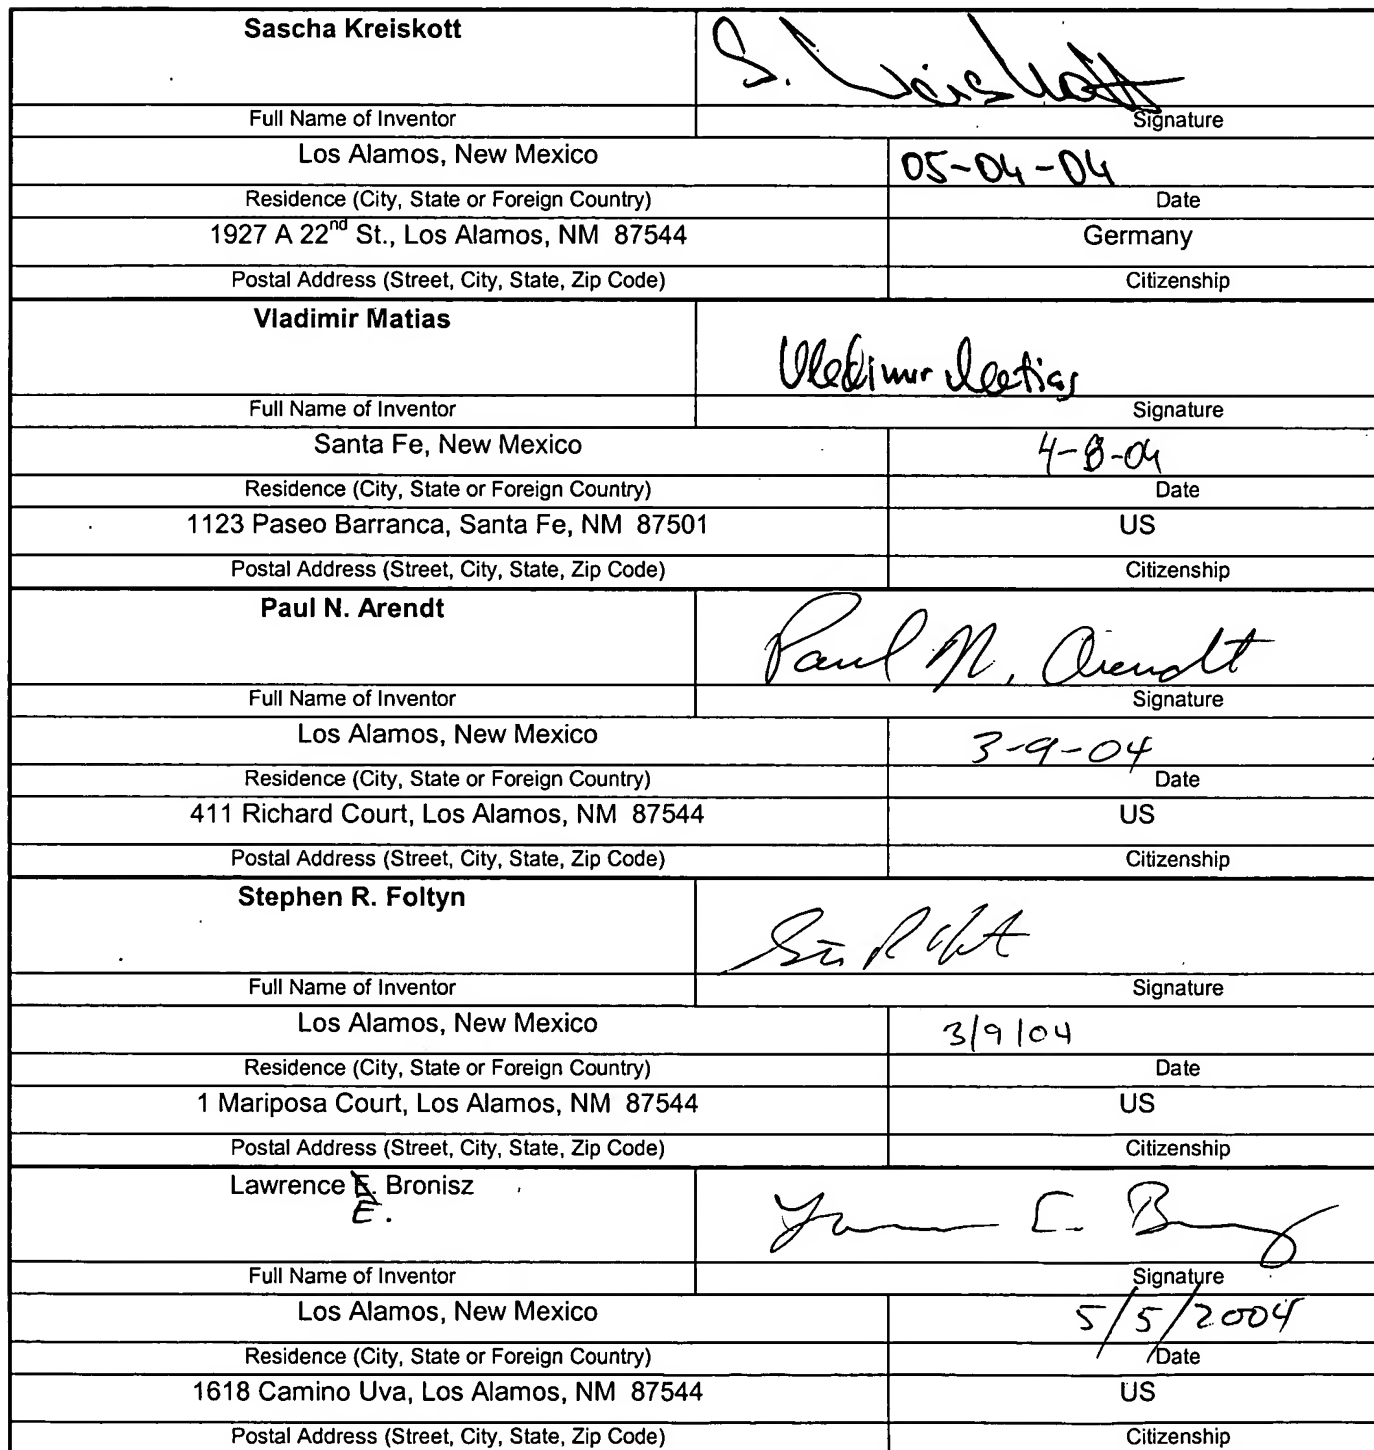 Sascha Kreiskott
S. Kreiskott
Full Name of Inventor Signature
Los Alamos, New Mexico 05-04-04
Residence (City, State or Foreign Country) Date
1927 A 22nd St., Los Alamos, NM 87544 Germany
Postal Address (Street, City, State, Zip Code) Citizenship
Vladimir Matias
Vladimir Matias
Full Name of Inventor Signature
Santa Fe, New Mexico 4-8-04
Residence (City, State or Foreign Country) Date
1123 Paseo Barranca, Santa Fe, NM 87501 US
Postal Address (Street, City, State, Zip Code) Citizenship
Paul N. Arendt
Paul N. Arendt
Full Name of Inventor Signature
Los Alamos, New Mexico 3-9-04
Residence (City, State or Foreign Country) Date
411 Richard Court, Los Alamos, NM 87544 US
Postal Address (Street, City, State, Zip Code) Citizenship
Stephen R. Foltyn
Full Name of Inventor Signature
Los Alamos, New Mexico 3/9/04
Residence (City, State or Foreign Country) Date
1 Mariposa Court, Los Alamos, NM 87544 US
Postal Address (Street, City, State, Zip Code) Citizenship
Lawrence Bronisz
E.
Full Name of Inventor Signature
Los Alamos, New Mexico 5/5/2004
Residence (City, State or Foreign Country) Date
1618 Camino Uva, Los Alamos, NM 87544 US
Postal Address (Street, City, State, Zip Code) Citizenship